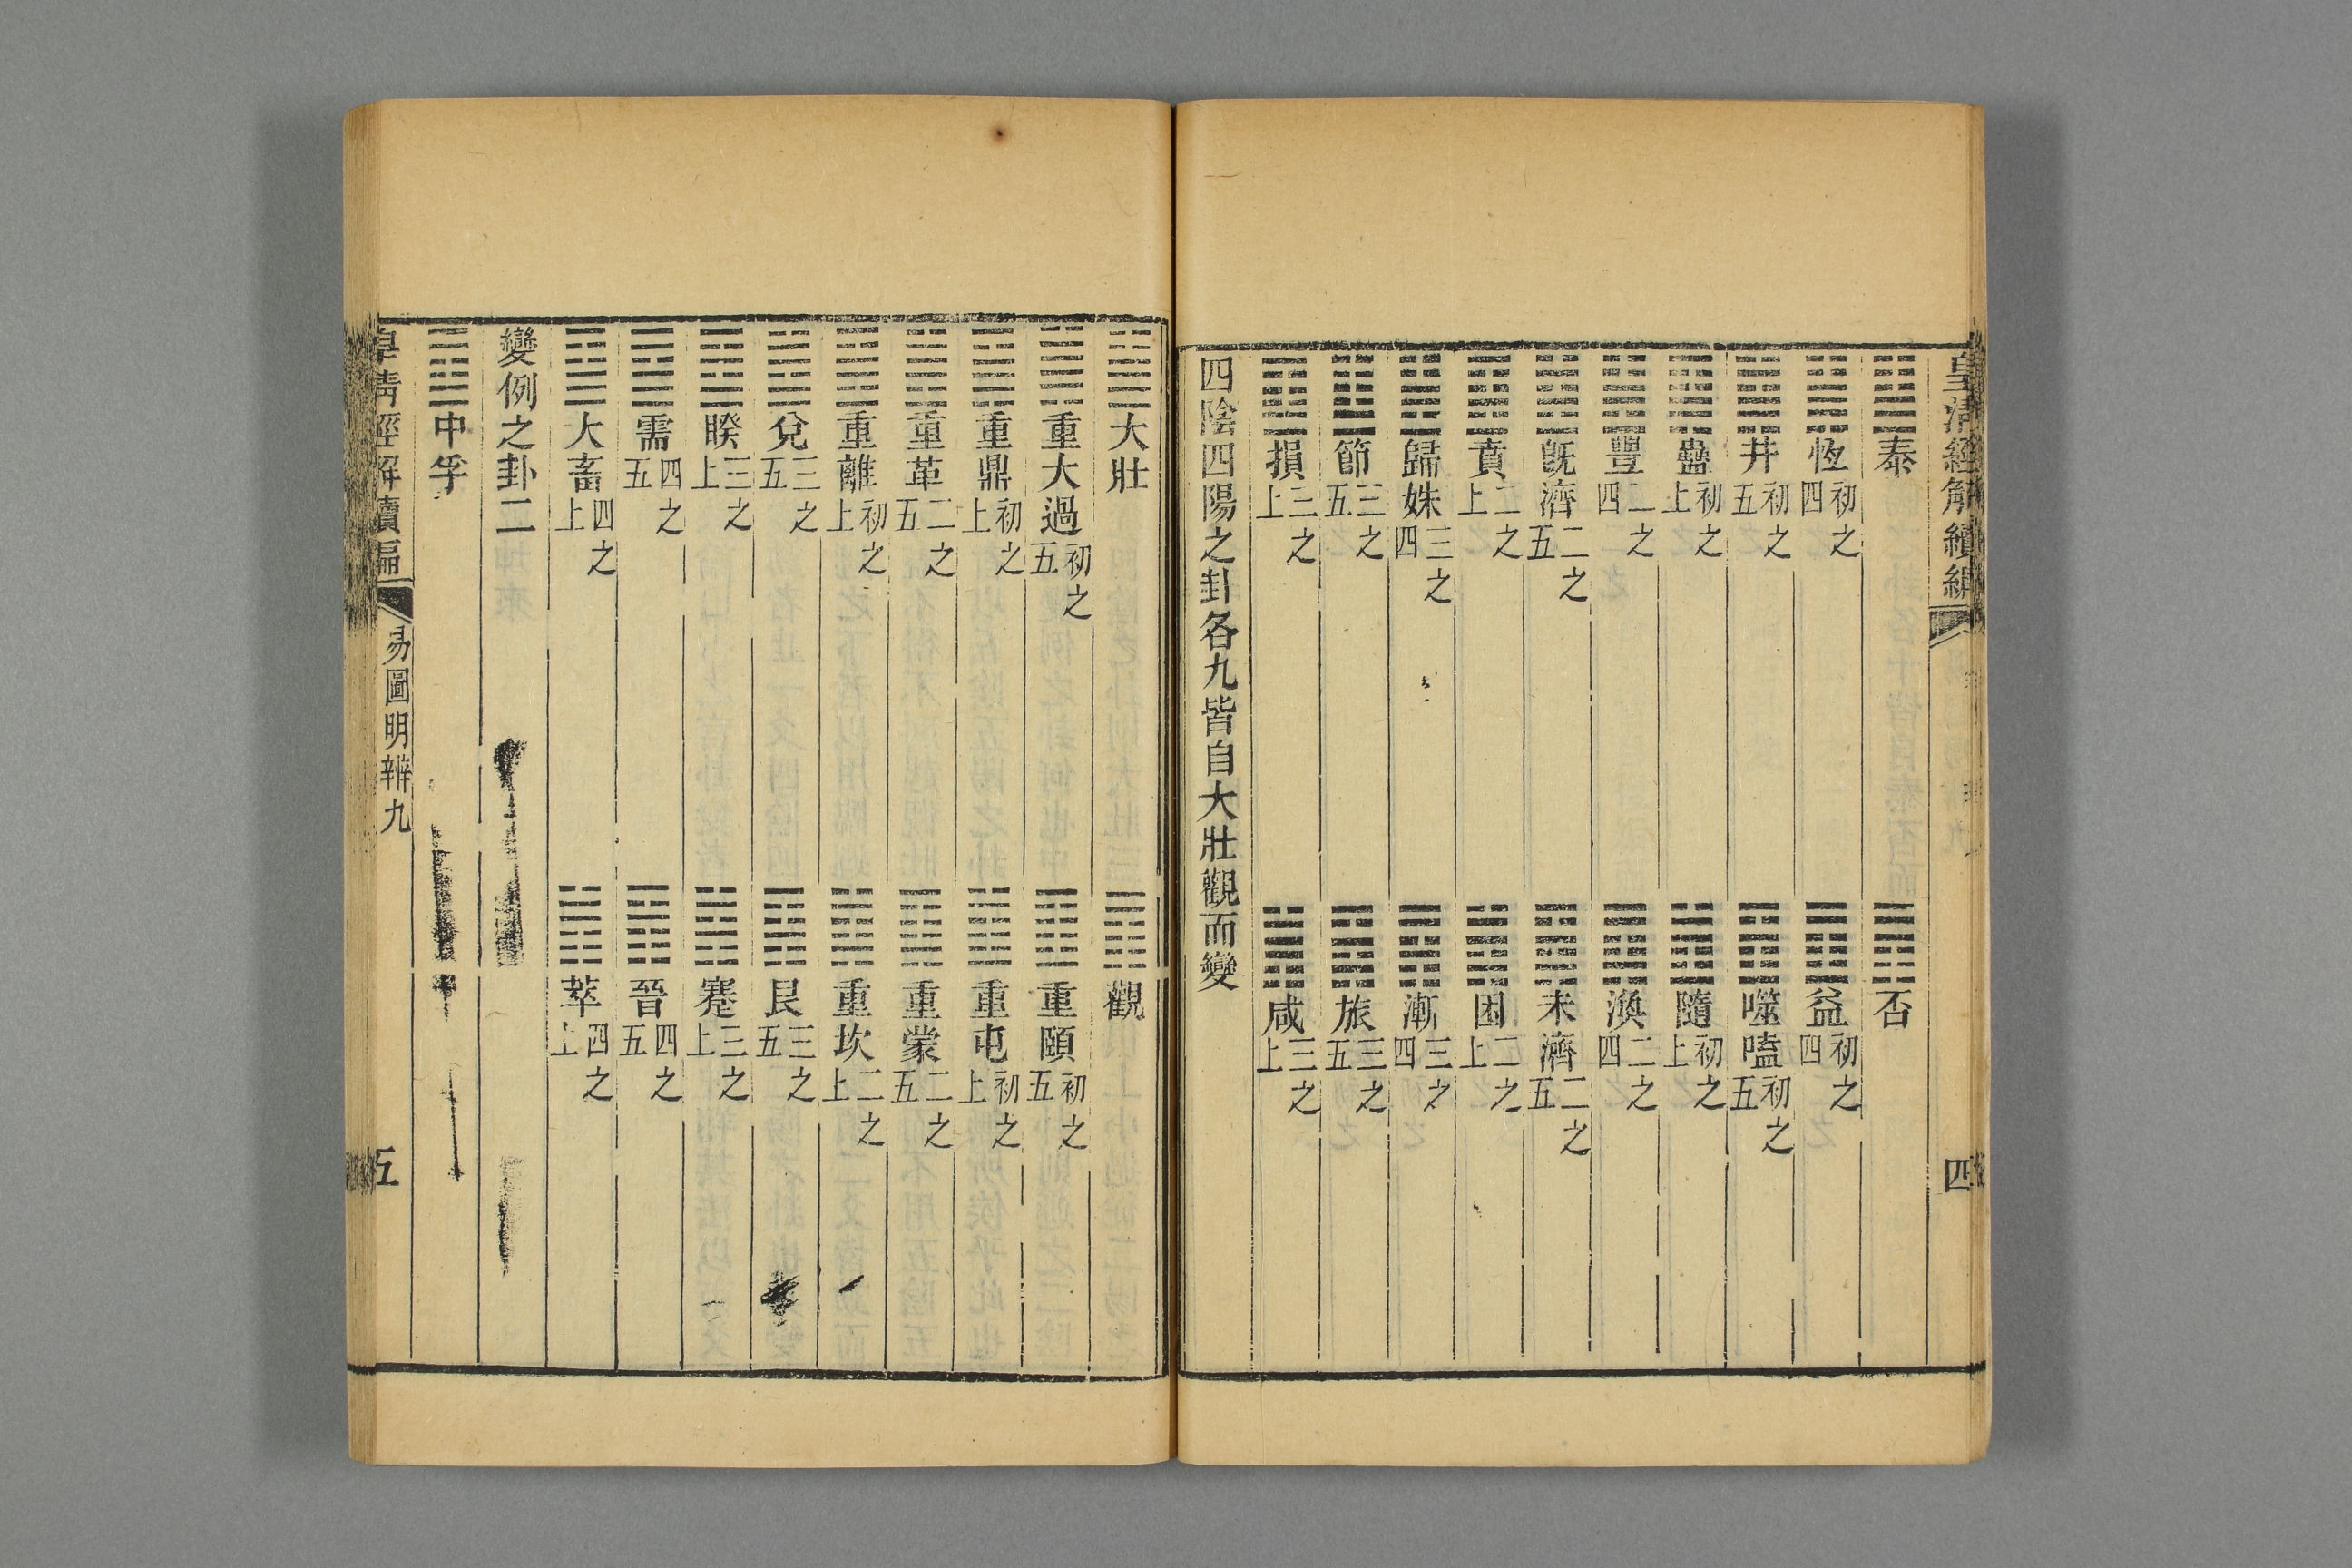 皇清經解續編
四
䷊泰 ䷋否
䷟恆初之四 ䷩益初之四
䷯井初之五 ䷔噬嗑初之五
䷑蠱初之上 ䷐隨初之上
䷶豐二之四 ䷺渙二之四
䷾旣濟二之五 ䷿未濟二之五
䷕賁二之上 ䷮困二之上
䷵歸妹三之四 ䷴漸三之四
䷻節三之五 ䷷旅三之五
䷨損三之上 ䷞咸三之上
四陰四陽之卦各九皆自大壯觀而變
䷡大壯 ䷓觀
䷛重大過初之五 ䷚重頤初之五
䷱重鼎初之上 ䷂重屯初之上
䷰重革二之五 ䷃重蒙二之五
䷝重離初之上 ䷜重坎二之上
䷹兌三之五 ䷳艮三之五
䷥睽三之上 ䷦蹇三之上
䷄需四之五 ䷢晉四之五
䷙大畜四之上 ䷬萃四之上
變例之卦二
䷼中孚
皇清經解續編 易圖明辨九 五